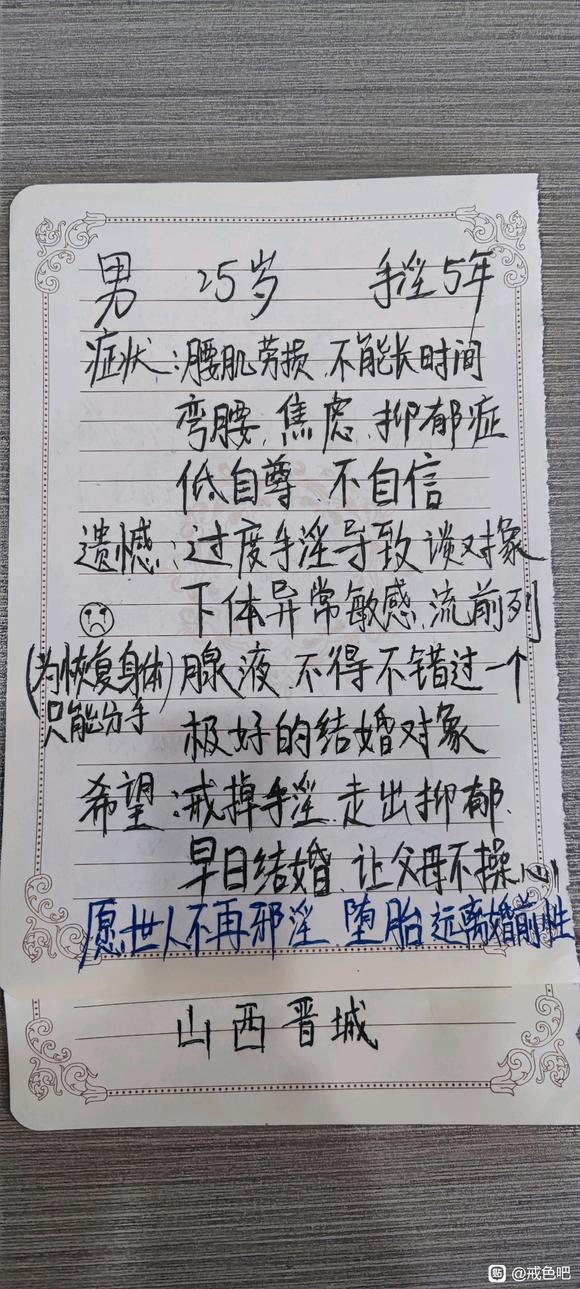 男 25岁 手淫5年
症状:腰肌劳损 不能长时间
弯腰、焦虑、抑郁症
低自尊、不自信
遗憾:过度手淫导致谈对象
下体异常敏感、流前列
(为恢复身体)腺液、不得不错过一个
只能分手 极好的结婚对象
希望:戒掉手淫、走出抑郁、
早日结婚、让父母不操心
愿世人不再邪淫 堕胎 远离婚前性
山西晋城
贴 @戒色吧